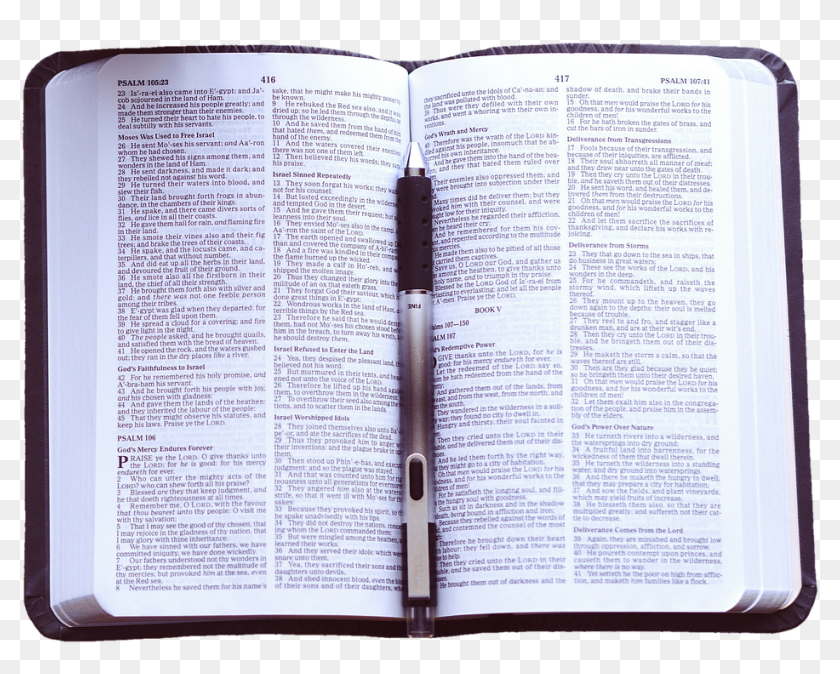 PSALM 105:23
416
23 Is'-ra-el also came into E'-gypt; and Ja'-
cob sojourned in the land of Ham.
24 And he increased his people greatly; and
made them stronger than their enemies.
25 He turned their heart to hate his people, to
deal subtilly with his servants.
Moses Was Used to Free Israel
26 He sent Mo'-ses his servant; and Aa'-ron
whom he had chosen.
27 They shewed his signs among them, and
wonders in the land of Ham.
28 He sent darkness, and made it dark; and
they rebelled not against his word.
29 He turned their waters into blood, and
slew their fish.
30 Their land brought forth frogs in abun-
dance, in the chambers of their kings.
31 He spake, and there came divers sorts of
flies, and lice in all their coasts.
32 He gave them hail for rain, and flaming fire
in their land.
33 He smote their vines also and their fig
trees; and brake the trees of their coasts.
34 He spake, and the locusts came, and ca-
terpillers, and that without number,
35 And did eat up all the herbs in their land,
and devoured the fruit of their ground.
36 He smote also all the firstborn in their
land, the chief of all their strength.
37 He brought them forth also with silver and
gold: and there was not one feeble person
among their tribes.
38 E'-gypt was glad when they departed: for
the fear of them fell upon them.
39 He spread a cloud for a covering; and fire
to give light in the night.
40 The people asked, and he brought quails,
and satisfied them with the bread of heaven.
41 He opened the rock, and the waters gushed
out; they ran in the dry places like a river.
God's Faithfulness to Israel
42 For he remembered his holy promise, and
A'-bra-ham his servant.
43 And he brought forth his people with joy,
and his chosen with gladness:
44 And gave them the lands of the heathen:
and they inherited the labour of the people;
45 That they might observe his statutes, and
keep his laws. Praise ye the LORD.
PSALM 106
God's Mercy Endures Forever
PRAISE ye the LORD. O give thanks unto
the LORD; for he is good: for his mercy
endureth for ever.
2 Who can utter the mighty acts of the
LORD? who can shew forth all his praise?
3 Blessed are they that keep judgment, and
he that doeth righteousness at all times.
4 Remember me, O LORD, with the favour
that thou bearest unto thy people: O visit me
with thy salvation;
5 That I may see the good of thy chosen, that
I may rejoice in the gladness of thy nation, that
I may glory with thine inheritance.
6 We have sinned with our fathers, we have
committed iniquity, we have done wickedly.
7 Our fathers understood not thy wonders in
E'-gypt; they remembered not the multitude of
thy mercies; but provoked him at the sea, even
at the Red sea.
8 Nevertheless he saved them for his name's
sake, that he might make his mighty power to
be known.
9 He rebuked the Red sea also, and it was
dried up: so he led them through the depths, as
through the wilderness.
10 And he saved them from the hand of him
that hated them, and redeemed them from the
hand of the enemy.
11 And the waters covered their enemies:
there was not one of them left.
12 Then believed they his words; they sang
his praise.
Israel Sinned Repeatedly
13 They soon forgat his works; they waited
not for his counsel:
14 But lusted exceedingly in the wilderness,
and tempted God in the desert.
15 And he gave them their request; but sent
leanness into their soul.
16 They envied Mo'-ses also in the camp, and
Aa'-ron the saint of the LORD.
17 The earth opened and swallowed up
and covered the company of A-bi'-ram.
18 And a fire was kindled in their company;
the flame burned up the wicked.
19 They made a calf in Ho'-reb, and wor-
shipped the molten image.
20 Thus they changed their glory into the
similitude of an ox that eateth grass.
21 They forgat God their saviour, which had
done great things in E'-gypt;
22 Wondrous works in the land of Ham,
terrible things by the Red sea.
23 Therefore he said that he would destroy
them, had not Mo'-ses his chosen stood before
him in the breach, to turn away his wrath,
he should destroy them.
Israel Refused to Enter the Land
24 Yea, they despised the pleasant land,
believed not his word:
25 But murmured in their tents, and heark-
ened not unto the voice of the LORD.
26 Therefore he lifted up his hand against
them, to overthrow them in the wilderness:
27 To overthrow their seed also among the
tions, and to scatter them in the lands.
Israel Worshipped Idols
28 They joined themselves also unto Ba'-al-
pe'-or, and ate the sacrifices of the dead.
29 Thus they provoked him to anger with
their inventions: and the plague brake in upon
them.
30 Then stood up Phin'-e-has, and executed
judgment: and so the plague was stayed.
31 And that was counted unto him for righ-
teousness unto all generations for evermore.
32 They angered him also at the waters
strife, so that it went ill with Mo'-ses for their
sakes:
33 Because they provoked his spirit, so that
he spake unadvisedly with his lips.
34 They did not destroy the nations, concern-
ing whom the LORD commanded them:
35 But were mingled among the heathen, and
learned their works.
36 And they served their idols: which were a
snare unto them.
37 Yea, they sacrificed their sons and their
daughters unto devils,
38 And shed innocent blood, even the blood
of their sons and of their daughters, whom
417
PSALM 107:41
they sacrificed unto the idols of Ca'-na-an: and
the land was polluted with blood.
39 Thus were they defiled with their own
works, and went a whoring with their own in-
ventions.
God's Wrath and Mercy
40 Therefore was the wrath of the LORD kin-
dled against his people, insomuch that he ab-
horred his own inheritance.
And he gave them into the hand of the hea-
then; and they that hated them ruled over
enemies also oppressed them, and
were brought into subjection under their
Many times did he deliver them; but they
provoked him with their counsel, and were
brought low for their iniquity.
Nevertheless he regarded their affliction,
when he heard their cry:
And he remembered for them his cov-
enant, and repented according to the multitude
of his mercies.
He made them also to be pitied of all those
that carried them captives.
Save us, O LORD our God, and gather us
from among the heathen, to give thanks unto
thy holy name, and to triumph in thy praise.
Blessed be the LORD God of Is'-ra-el from
everlasting to everlasting: and let all the people
say, A-men'. Praise ye the LORD.
BOOK V
Psalms 107—150
PSALM 107
Redemptive Power
GIVE thanks unto the LORD, for he is
good: for his mercy endureth for ever.
Let the redeemed of the LORD say so,
whom he hath redeemed from the hand of the
enemy;
And gathered them out of the lands, from
the east, and from the west, from the north,
and from the south.
They wandered in the wilderness in a soli-
tary way; they found no city to dwell in.
Hungry and thirsty, their soul fainted in
them.
Then they cried unto the LORD in their
trouble, and he delivered them out of their dis-
tresses.
And he led them forth by the right way,
that they might go to a city of habitation.
Oh that men would praise the LORD for his
goodness, and for his wonderful works to the
children of men!
For he satisfieth the longing soul, and fill-
eth the hungry soul with goodness.
Such as sit in darkness and in the shadow of
death, being bound in affliction and iron;
Because they rebelled against the words of
God, and contemned the counsel of the most
High:
Therefore he brought down their heart
with labour; they fell down, and there was
none to help.
Then they cried unto the LORD in their
trouble, and he saved them out of their dis-
tresses.
He brought them out of darkness and the
shadow of death, and brake their bands in
sunder.
15 Oh that men would praise the LORD for his
goodness, and for his wonderful works to the
children of men!
16 For he hath broken the gates of brass, and
cut the bars of iron in sunder.
Deliverance from Transgressions
17 Fools because of their transgression, and
because of their iniquities, are afflicted.
18 Their soul abhorreth all manner of meat;
and they draw near unto the gates of death.
19 Then they cry unto the LORD in their trou-
ble, and he saveth them out of their distresses.
20 He sent his word, and healed them, and de-
livered them from their destructions.
21 Oh that men would praise the LORD for his
goodness, and for his wonderful works to the
children of men!
22 And let them sacrifice the sacrifices of
thanksgiving, and declare his works with re-
joicing.
Deliverance from Storms
23 They that go down to the sea in ships, that
do business in great waters;
24 These see the works of the LORD, and his
wonders in the deep.
25 For he commandeth, and raiseth the
stormy wind, which lifteth up the waves
thereof.
26 They mount up to the heaven, they go
down again to the depths: their soul is melted
because of trouble.
27 They reel to and fro, and stagger like a
drunken man, and are at their wit's end.
28 Then they cry unto the LORD in their trou-
ble, and he bringeth them out of their dis-
tresses.
29 He maketh the storm a calm, so that the
waves thereof are still.
30 Then are they glad because they be quiet;
so he bringeth them unto their desired haven.
31 Oh that men would praise the LORD for his
goodness, and for his wonderful works to the
children of men!
32 Let them exalt him also in the congrega-
tion of the people, and praise him in the assem-
bly of the elders.
God's Power Over Nature
33 He turneth rivers into a wilderness, and
the watersprings into dry ground;
34 A fruitful land into barrenness, for the
wickedness of them that dwell therein.
35 He turneth the wilderness into a standing
water, and dry ground into watersprings.
36 And there he maketh the hungry to dwell,
that they may prepare a city for habitation;
37 And sow the fields, and plant vineyards,
which may yield fruits of increase.
38 He blesseth them also, so that they are
multiplied greatly; and suffereth not their cat-
tle to decrease.
Deliverance Comes from the Lord
39 Again, they are minished and brought low
through oppression, affliction, and sorrow.
40 He poureth contempt upon princes, and
causeth them to wander in the wilderness,
where there is no way.
41 Yet setteth he the poor on high from afflic-
tion, and maketh him families like a flock.
FINE